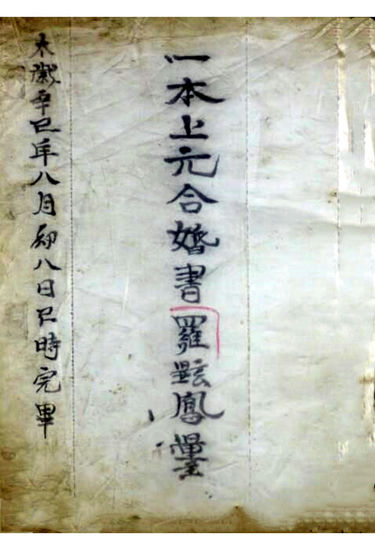 一本上元合婚書羅鉉鳳墨
太歲辛巳年八月初八日巳時完畢